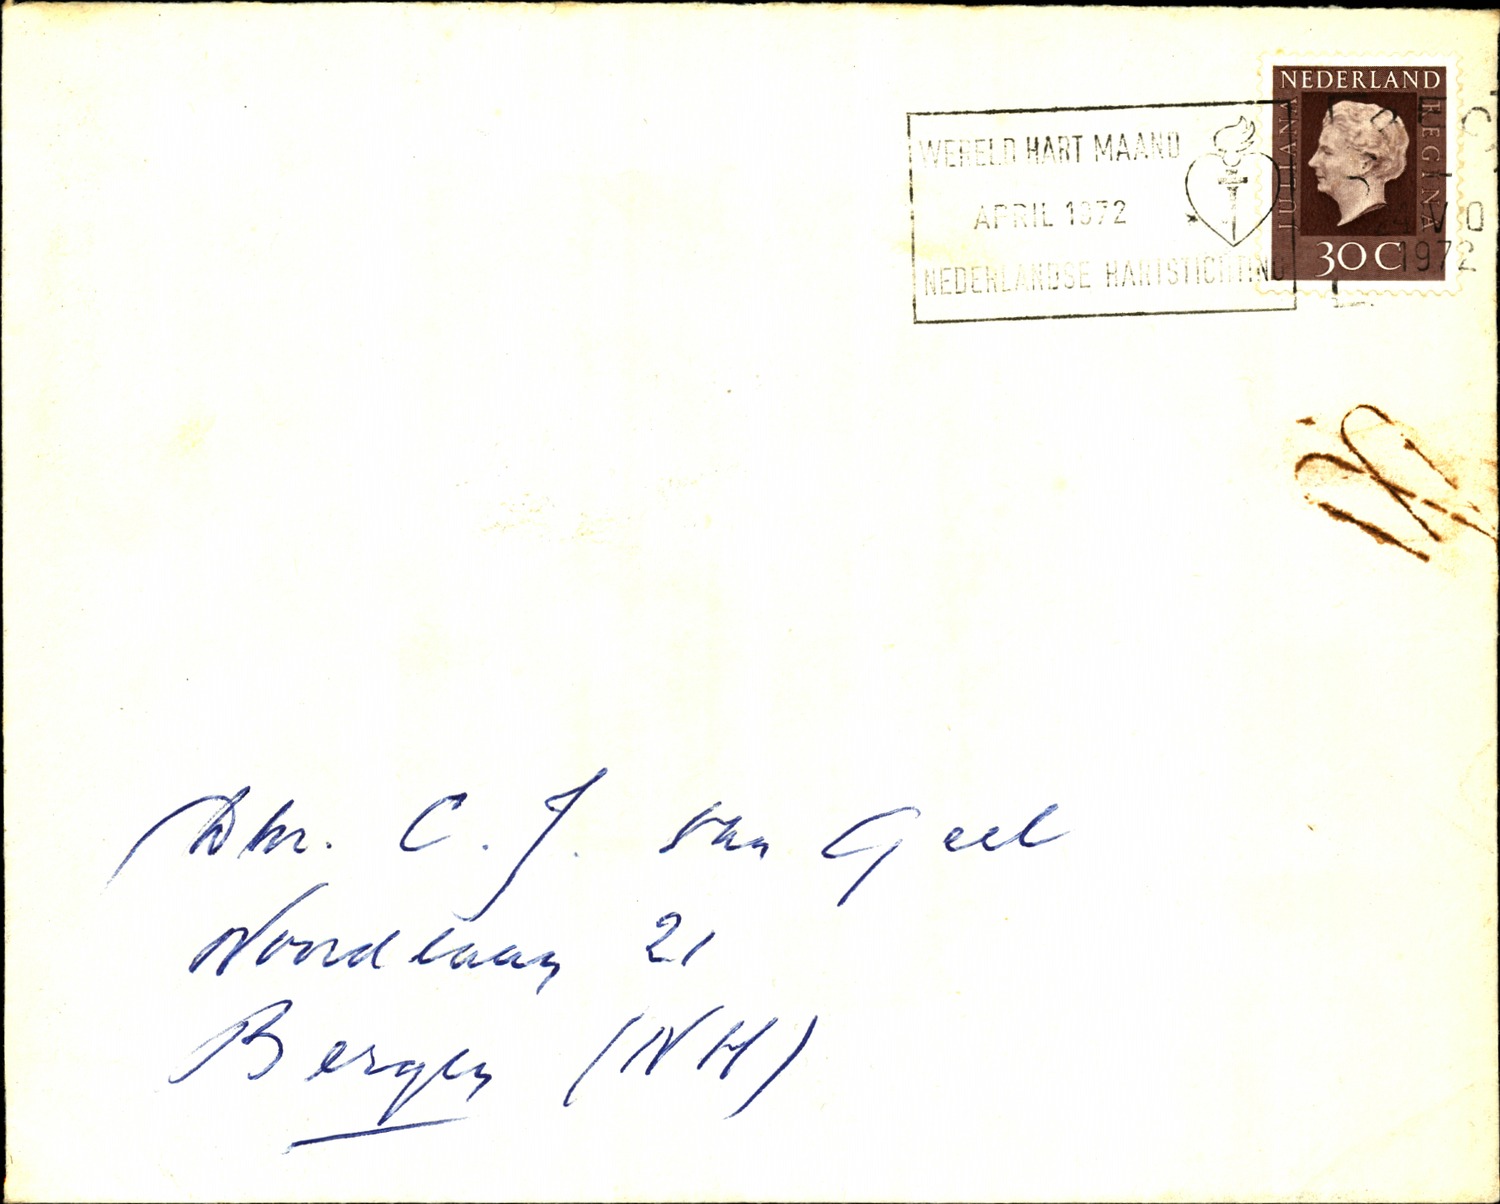 NEDERLAND
JULIANA
REGINA
30 C
WERELD HART MAAND
APRIL 1972
NEDERLANDSE HARTSTICHTING
1972
Dhr. C. J. van Geel
Noordlaan 21
Bergen (NH)